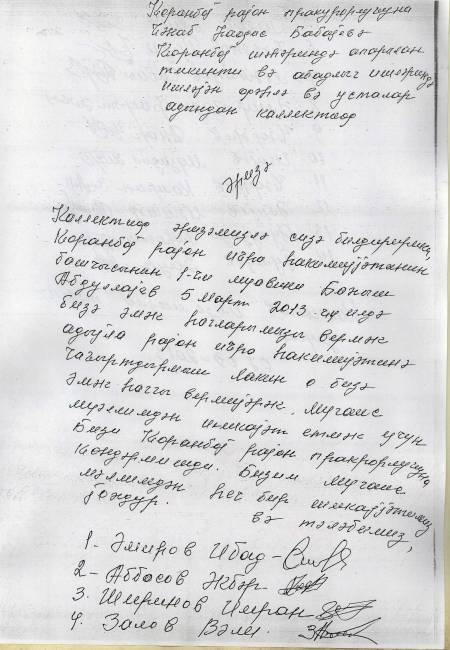 Ҝоранбој рајон пракурорлуғуна
Ҹәнаб Надас Бабајевә
Ҝоранбој шәһәриндә апарылан
тикинти вә абадлығ ишләриндә
ишләјән фәһлә вә усталар
адындан каллектив
әризә
Каллектив әризәмизлә сизә билдиририк ки,
Ҝоранбој рајон иҹра һакимијјәтинин
башчысынын 1-ҹи муавини Баһыш
Абдуллајев 5 Март 2013.ҹү илдә
бизә әмәк һагларымызы вермәк
адыјла рајон иҹра һакимијәтинә
чағыртдырмыш лакин о бизә
әмәк һаггы вермијәрәк, Мүгаис
мүәлимдән шикајәт етмәк үчүн
бизи Ҝоранбој рајон пракрорлуғуна
ҝөндәрмишди. Бизим Мүгаис
мәллимдән һеч бир шикајәтимиз
вә тәләбимиз,
јохдур.
1- Әмиров Ибад -
2- Аббасов Әкбәр
3. Ширинов Имран
4. Залов Вәли.